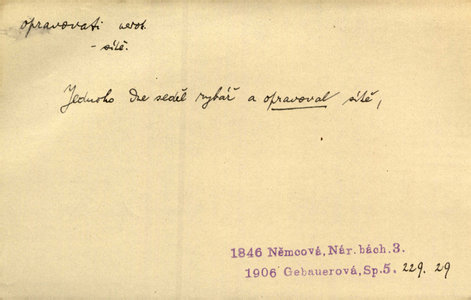 opravovati nedok.
- sítě.
Jednoho dne seděl rybář a opravoval sítě,
1846 Němcová, Nár. bách. 3.
1906 Gebauerová, Sp. 5. 229. 29